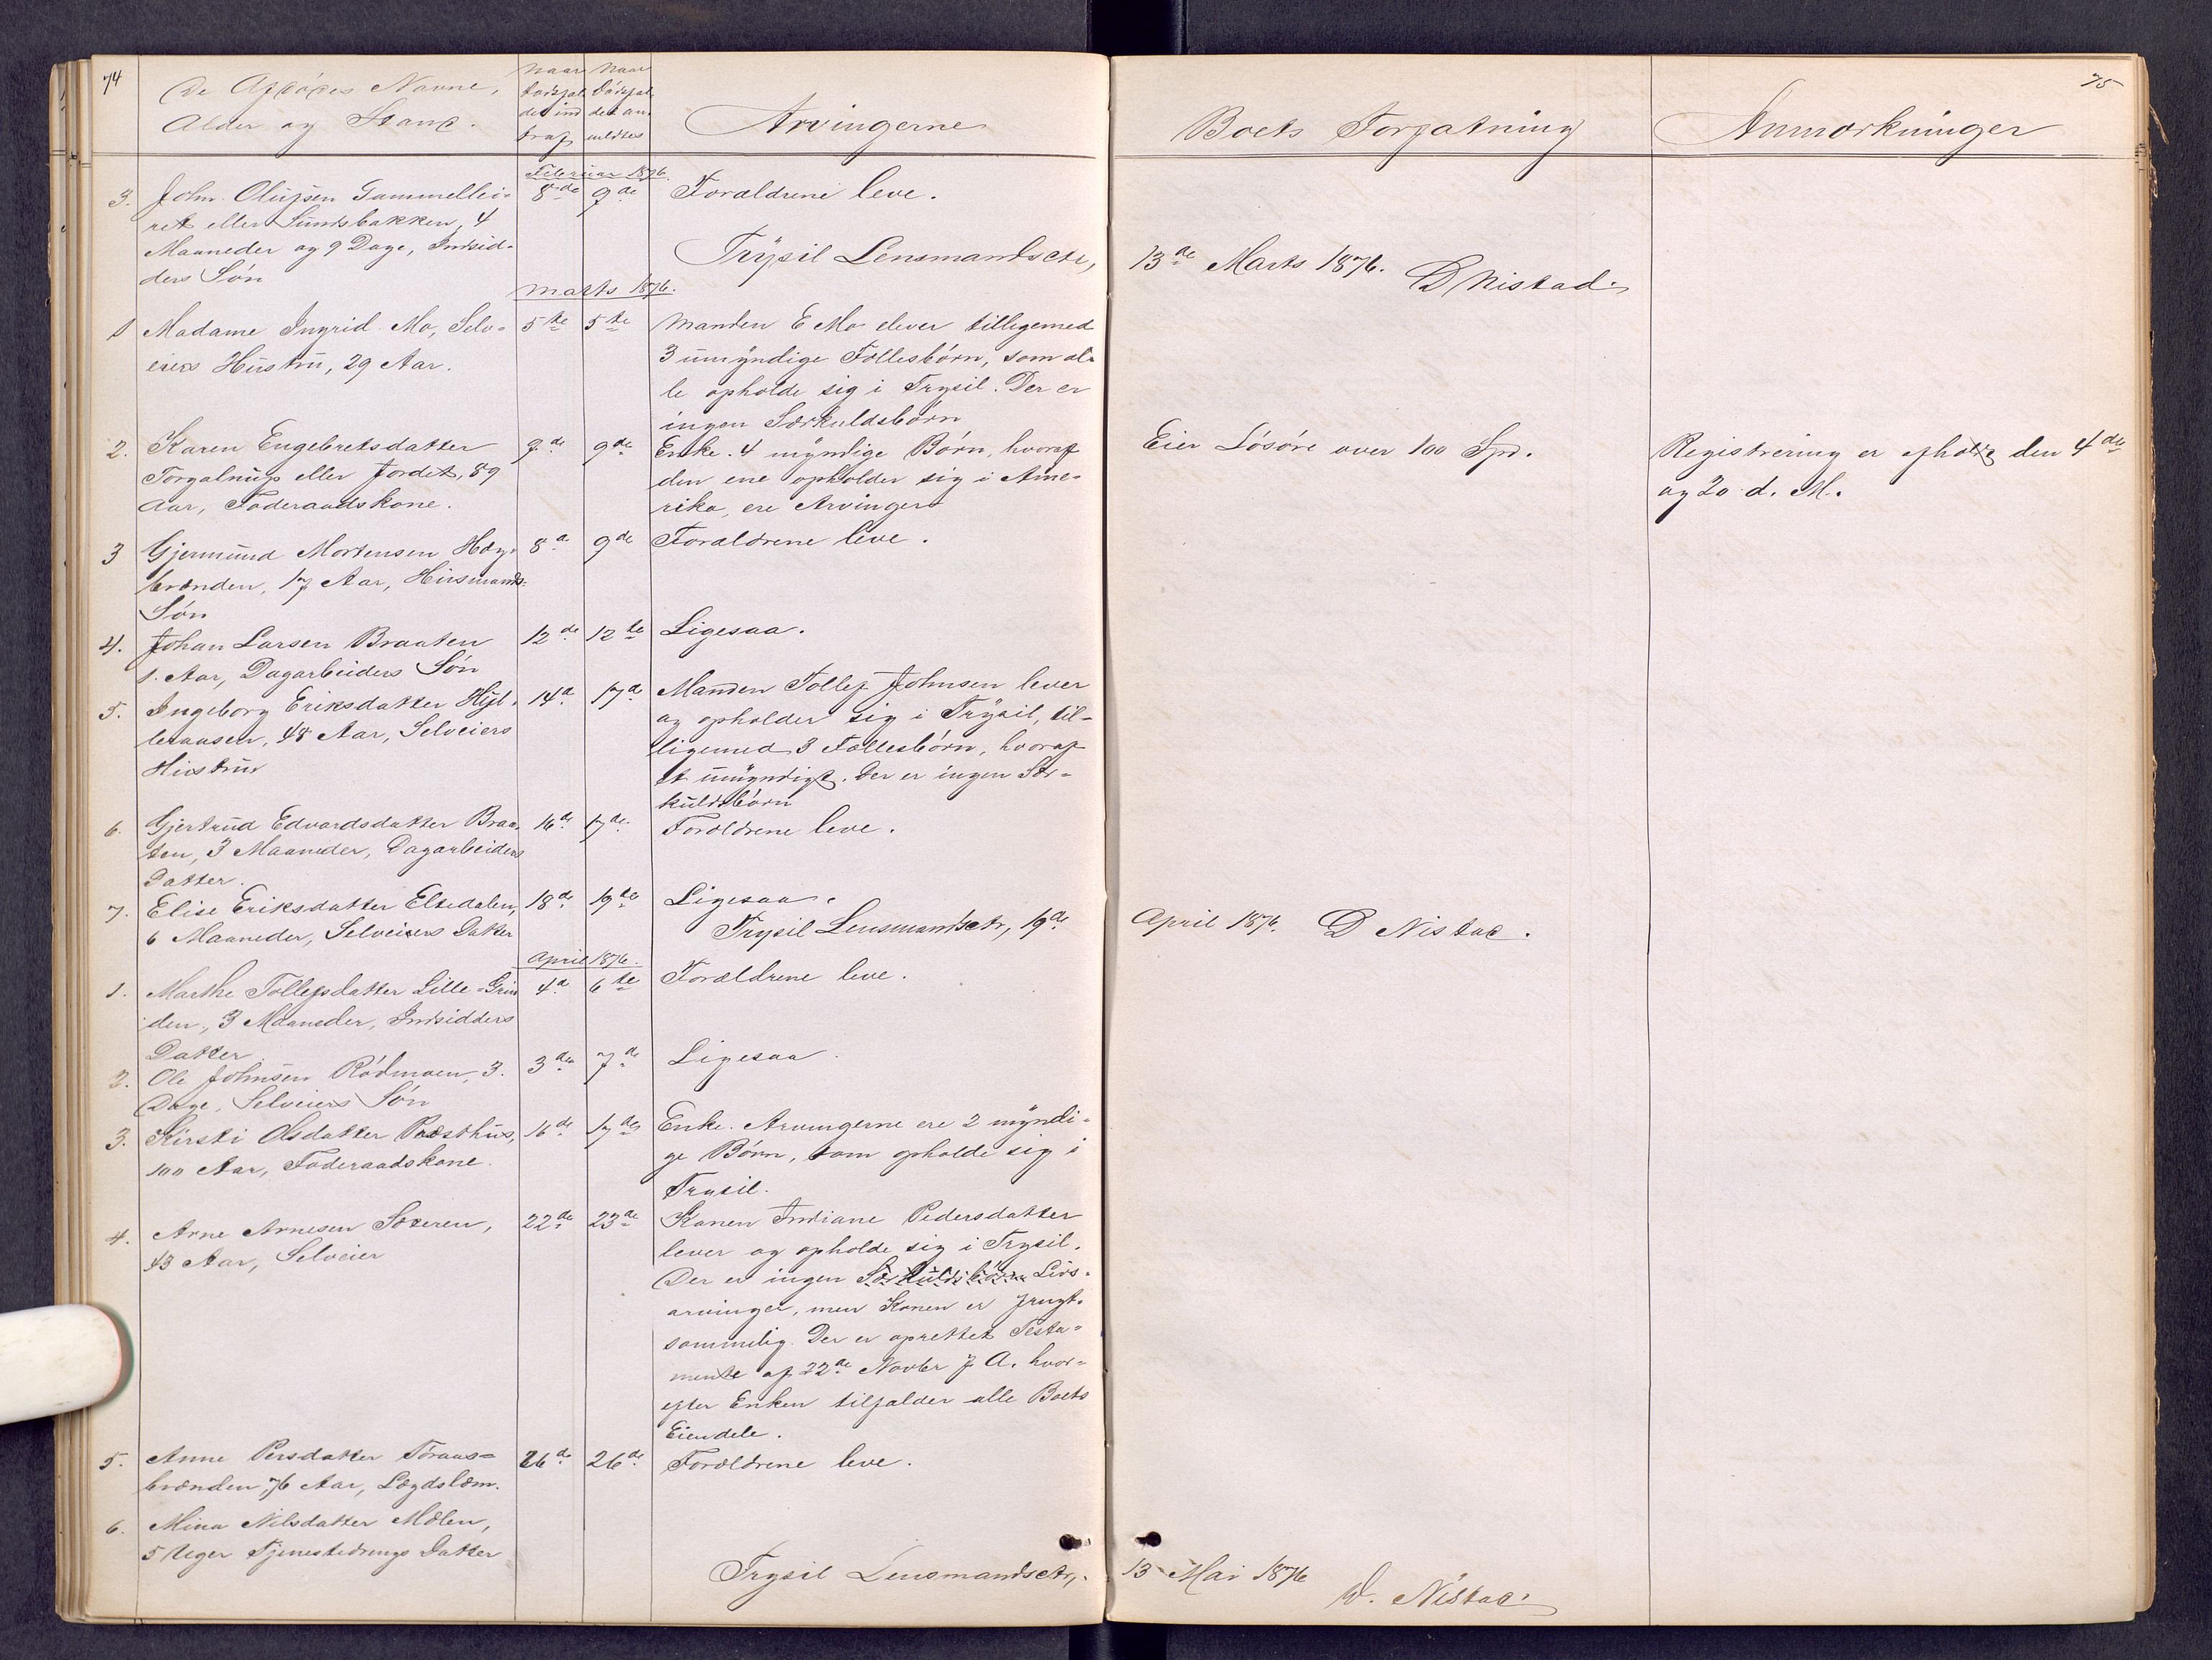 74
De Afdødes Navne,
Alder og Stand.
Naar
dødsfal
det ind
traf
Naar
dødsfal
det an
meldtes
Arvingerne
Februar 1876.
3. John Olufsen Gammellei-
ret eller Sundsbakken, 4
Maaneder og 9 Dage, Indsid-
ders Søn
8de 9de Forældrene leve.
Trysil Lensmandsctr,
Marts 1876.
1 Madame Ingrid Mo, Selv-
eiers Hustru, 29 Aar.
5te 5te Manden E Mo lever tilligemed
3 umyndige Fællesbørn, som al-
le opholde sig i Trysil. Der er
ingen Særkuldsbørn
2. Karen Engebretsdatter
Torgalnugs eller Jordet, 89
Aar, Føderaadskone.
7de 9de Enke. 4 myndige Børn, hvoraf
den ene opholder sig i Ame-
rika, ere Arvinger
3 Gjermund Mortensen Hæg-
brænden, 17 Aar, Husmands-
Søn
8de 9de Forældrene leve.
4. Johan Larsen Braaten
1. Aar, Dagarbeiders Søn
12de 12te Ligesaa.
5. Ingeborg Eriksdatter Hyl-
leraasen, 48 Aar, Selveiers
Hustru
14de 17de Manden Tollef Johnsen lever
og opholder sig i Trysil, til-
ligemed 3 Fællesbørn, hvoraf
et umyndigt. Der er ingen Sær-
kuldsbørn
6. Gjertrud Edvardsdatter Braa-
ten, 3 Maaneder, Dagarbeiders
Datter.
16de 17de Forældrene leve.
7. Elise Eriksdatter Eltedalen,
6 Maaneder, Selveiers Datter
18de 19de Ligesaa.
Trysil Lensmandsctr, 19de
April 1876.
1. Marthe Tollefsdatter Lille-Grin
den, 3 Maaneder, Indsidders
Datter
4de 6te Forældrene leve.
2. Ole Johnsen Rødmoen, 3.
Dage, Selveiers Søn
3die 7de Ligesaa.
3. Kirsti Olsdatter Præsthus,
100 Aar, Føderaadskone.
16de 17de Enke. Arvingerne ere 2 myndi-
ge Børn, som opholde sig i
Trysil.
4. Arne Arnesen Sæteren,
43 Aar, Selveier
22de 23de Konen Indiane Pedersdatter
lever og opholde sig i Trysil.
Der er ingen Særkuldsbørn Livs-
arvinger, men Konen er frugt-
sommelig. Der er oprettet Testa-
mente af 22de Novbr f A. hvor-
efter Enken tilfalder alle Boets
Eiendele.
5. Anne Persdatter Føraas-
brænden, 76 Aar, Lægdslem.
26de 26de Forældrene leve.
6. Mina Nilsdatter Mølen,
5 Uger Tjenestedrengs Datter
Trysil Lensmandsctr,
75
Boets Forfatning
Anmærkninger
13de Marts 1876. D Nistad.
Eier Løsøre over 100 Spd.
Registrering er afholdt den 4de
og 20 d. M.
April 1876. D Nistad.
13 Mai 1876
D. Nistad